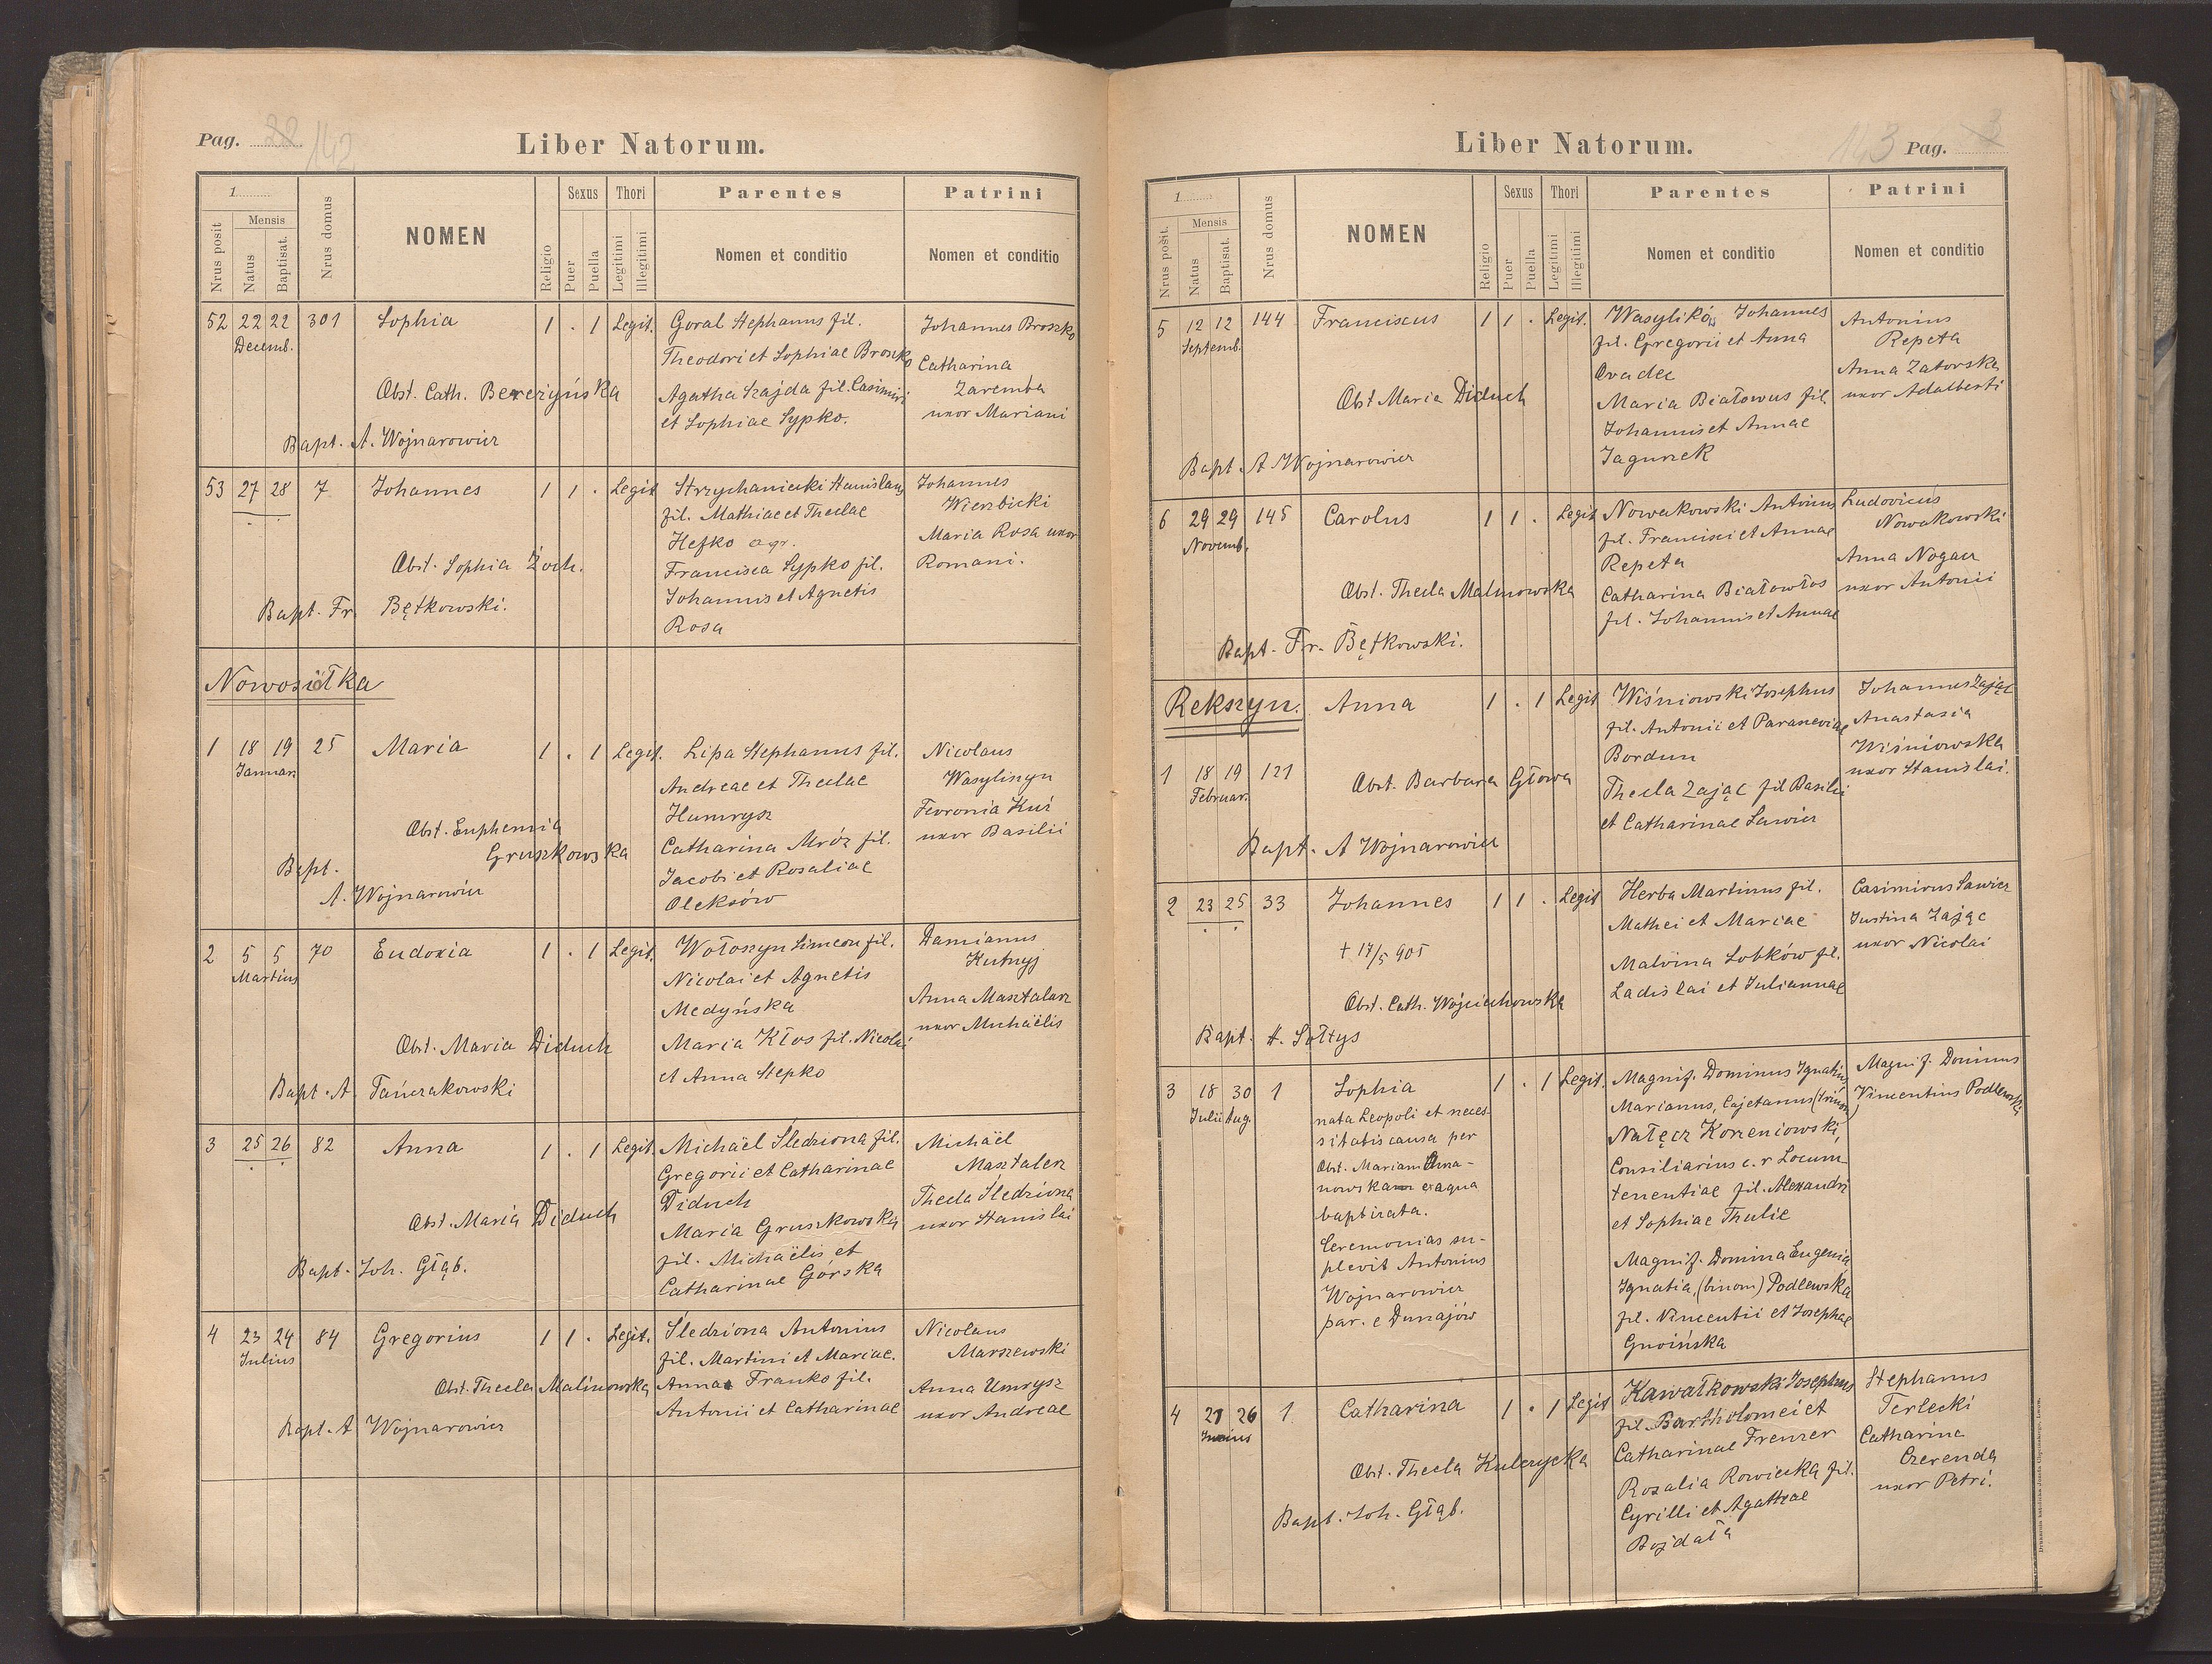 Pag. 22 142
Liber Natorum.
1
Nrus posit
Mensis
Natus
Baptisat.
Nrus domus
NOMEN
Religio
Sexus
Puer
Puella
Thori
Legitimi
Illegitimi
Parentes
Nomen et conditio
Patrini
Nomen et conditio
52 22 22 301 Sophia 1 . 1 Legit.
Decemb.
Obst. Cath. Bereżyńska
Bapt. A. Wojnarowicz
Goral Stephanus fil.
Theodori et Sophiae Brosko
Agatha Szajda fil. Casimiri
et Sophiae Sypko.
Johannes Broszko
Catharina
Zaremba
uxor Mariani
53 27 28 7 Johannes 1 1 . Legit
Obst. Sophia Żoch.
Bapt. Fr. Bętkowski.
Strzychaniecki Stanislaus
fil. Mathiae et Theclae
Hefko agr.
Francisca Sypko fil.
Johannis et Agnetis
Rosa
Johannes
Wierzbicki
Maria Rosa uxor
Romani.
Nowosiółka
1 18 19 25 Maria 1 . 1 Legit.
Januar
Obst. Euphemia
Gruszkowska
Bapt.
A. Wojnarowicz
Lipa Stephanus fil.
Andreae et Theclae
Humrysz
Catharina Mróz fil.
Jacobi et Rosaliae
Oleksów
Nicolaus
Wasyliszyn
Fevronia Kuś
uxor Basilii
2 5 5 70 Eudoxia 1 . 1 Legit.
Martius
Obst. Maria Diduch
Bapt. A. Tańczakowski
Wołoszyn Simeon fil.
Nicolai et Agnetis
Medyńska
Maria Kłos fil. Nicolai
et Anna Stepko
Damianus
Kutnyj
Anna Masztalerz
uxor Michaëlis
3 25 26 82 Anna 1 . 1 Legit.
Obst. Maria Diduch
Bapt. Joh. Głąb.
Michaël Śledziona fil.
Gregorii et Catharinae
Diduch
Maria Gruszkowska
fil. Michaëlis et
Catharinae Górska
Michaël
Masztalerz
Thecla Śledziona
uxor Stanislai
4 23 24 84 Gregorius 1 1 . Legit.
Julius
Obst. Thecla Malinowska
Bapt. A Wojnarowicz
Śledziona Antonius
fil. Martini et Mariae.
Anna Franko fil.
Antonii et Catharinae
Nicolaus
Marszewski
Anna Umrysz
uxor Andreae
Liber Natorum.
143 Pag. 3
1
Nrus posit.
Mensis
Natus
Baptisat.
Nrus domus
NOMEN
Religio
Sexus
Puer
Puella
Thori
Legitimi
Illegitimi
Parentes
Nomen et conditio
Patrini
Nomen et conditio
5 12 12 144 Franciscus 1 1 . Legit.
Septemb.
Obst Maria Diduch
Bapt. A Wojnarowicz
Wasylików Johannes
fil. Gregorii et Anna
Ovadec
Maria Białowus fil.
Johannis et Annae
Jagunek
Antonius
Repeta
Anna Zatorska
uxor Adalberti
6 29 29 145 Carolus 1 1 . Legit
Novemb.
Obst. Thecla Malinowska
Bapt. Fr. Bętkowski.
Nowakowski Antonius
fil. Francisci et Annae
Repeta
Catharina Białowłos
fil. Johannis et Annae
Ludovicus
Nowakowski
Anna Nogacz
uxor Antonii
Rekszyn.
Anna 1 . 1 Legit
1 18 19 121
Februar.
Obst. Barbara Głowa
Bapt. A Wojnarowicz
Wiśniowski Josephus
fil. Antonii et Parasceviae
Bordun
Thecla Zając fil Basilii
et Catharinae Sawicz
Johannes Zając
Anastasia
Wiśniowska
uxor Stanislai.
2 23 25 33 Johannes 1 1 . Legit
† 17/5 905
Obst. Cath. Wojciechowska
Bapt. A. Sołtys
Herba Martinus fil.
Mathei et Mariae
Malvina Sobków fil.
Ladislai et Juliannae
Casimirus Sawicz
Justina Zając
uxor Nicolai
3 18 30 1 Sophia 1 . 1 Legit.
Julii Aug.
nata Leopoli et neces
sitatis causa per
Obst. Mariam
nowskam ex aqua
baptizata.
Ceremonias su-
plevit Antonius
Wojnarowicz
par. e Dunajów
Magnif. Dominus Ignatius
Marianus, Cajetanus (trinom)
Nałęcz Korzeniowski,
Consiliarius c. r Locum
tenentiae fil. Alexandri
et Sophiae Thulie
Magnif. Domina Eugenia
Ignatia, (binom) Podlewska
fil. Vincentii et Josephae
Gnoińska
Magnif. Dominus
Vincentius Podlewski
4 21 26 1 Catharina 1 . 1 Legit
Obst. Thecla Kulczycka
Bapt. Joh. Głąb.
Kawałkowski Josephus
fil. Bartholomei et
Catharinae Frenzer
Rozalia Rowicka fil.
Cyrilli et Agathae
Bojdała
Stephanus
Terlecki
Catharina
Czerenda
uxor Petri.